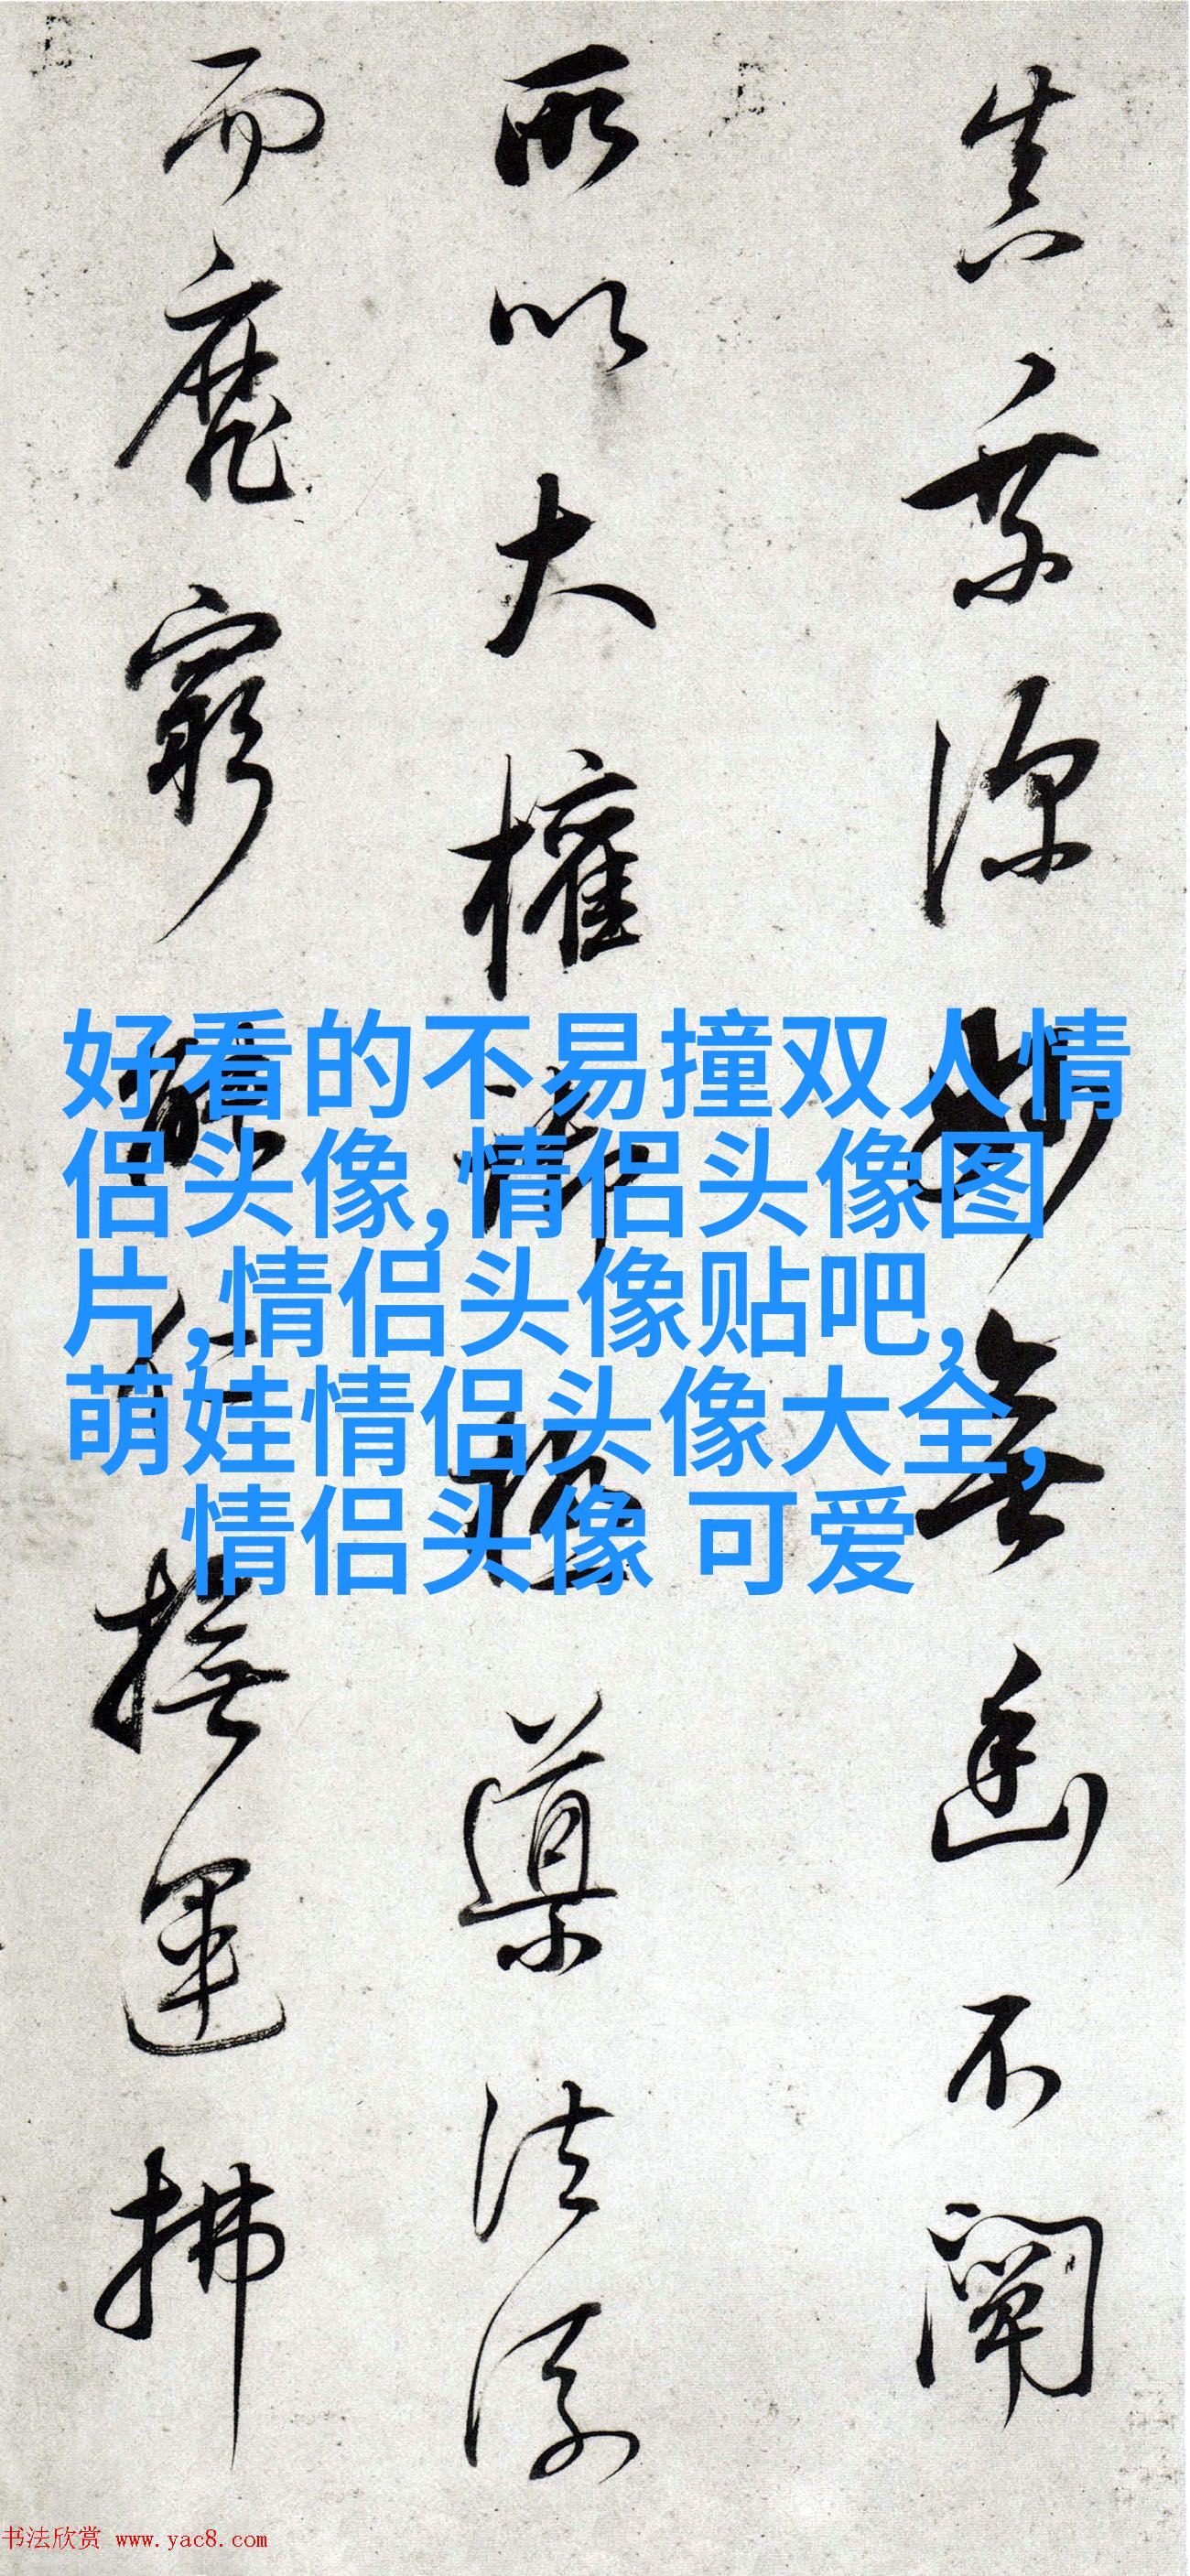 真宗源妙無幽不闡
所以大權
導法俗
而靡窮
任撫運拂
好看的不易撞双人情
侣头像,情侣头像图
片,情侣头像贴吧,
萌娃情侣头像大全,
情侣头像 可爱
书法欣赏 www.yac8.com